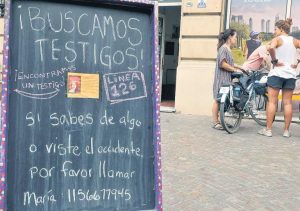 ¡BUSCAMOS
TESTIGOS!
¡ENCONTRAMOS
UN TESTIGO!
LíNEA
126
Si sabes de algo
o viste el accidente
por favor llamar
María: 1156677945